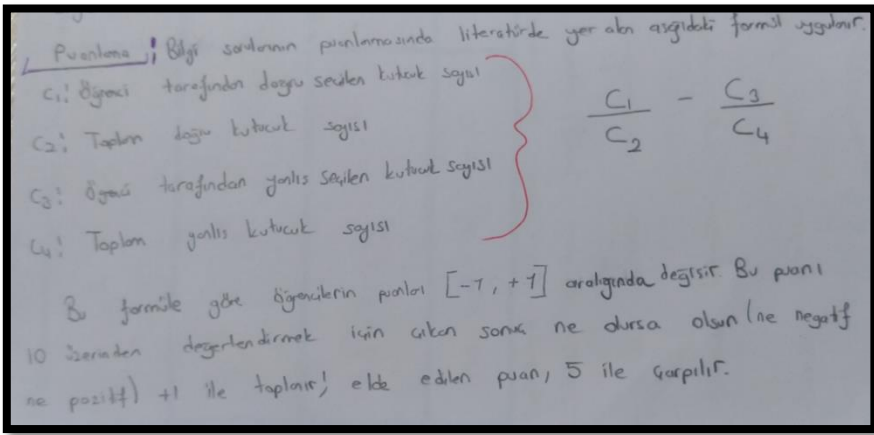 Puanlama ; Bilgi sorularının puanlamasında literatürde yer alan aşağıdaki formül uygulanır.
C₁: Öğrenci tarafından doğru seçilen kutucuk sayısı
C₂: Toplam doğru kutucuk sayısı
C₃: Öğrenci tarafından yanlış seçilen kutucuk sayısı
C₄: Toplam yanlış kutucuk sayısı
C₁/C₂ - C₃/C₄
Bu formüle göre öğrencilerin puanları [-1, +1] aralığında değişir. Bu puanı
10 üzerinden değerlendirmek için çıkan sonuç ne olursa olsun (ne negatif
ne pozitif) +1 ile toplanır; elde edilen puan, 5 ile çarpılır.